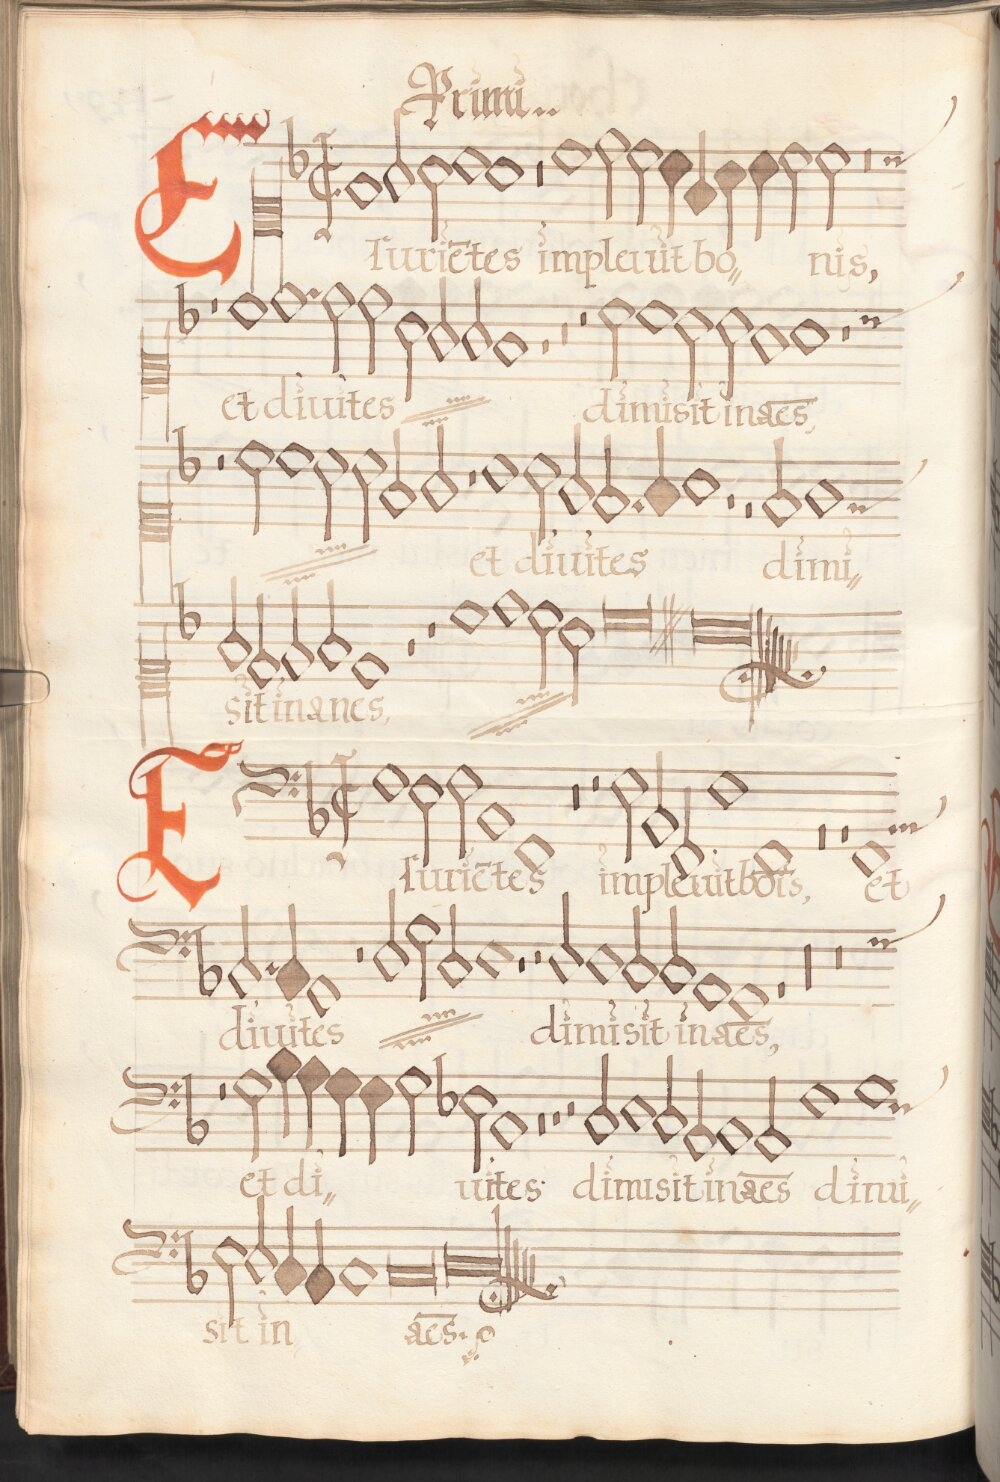 Primi..
Esuriētes implevit bo„ nis,
et divites dimisit inaēs,
et divites dimi„
sit inanes,
Esuriētes implevit boīs, et
divites dimisit inaēs,
et di„ vites dimisit inaēs dimi„
sit in aēs.